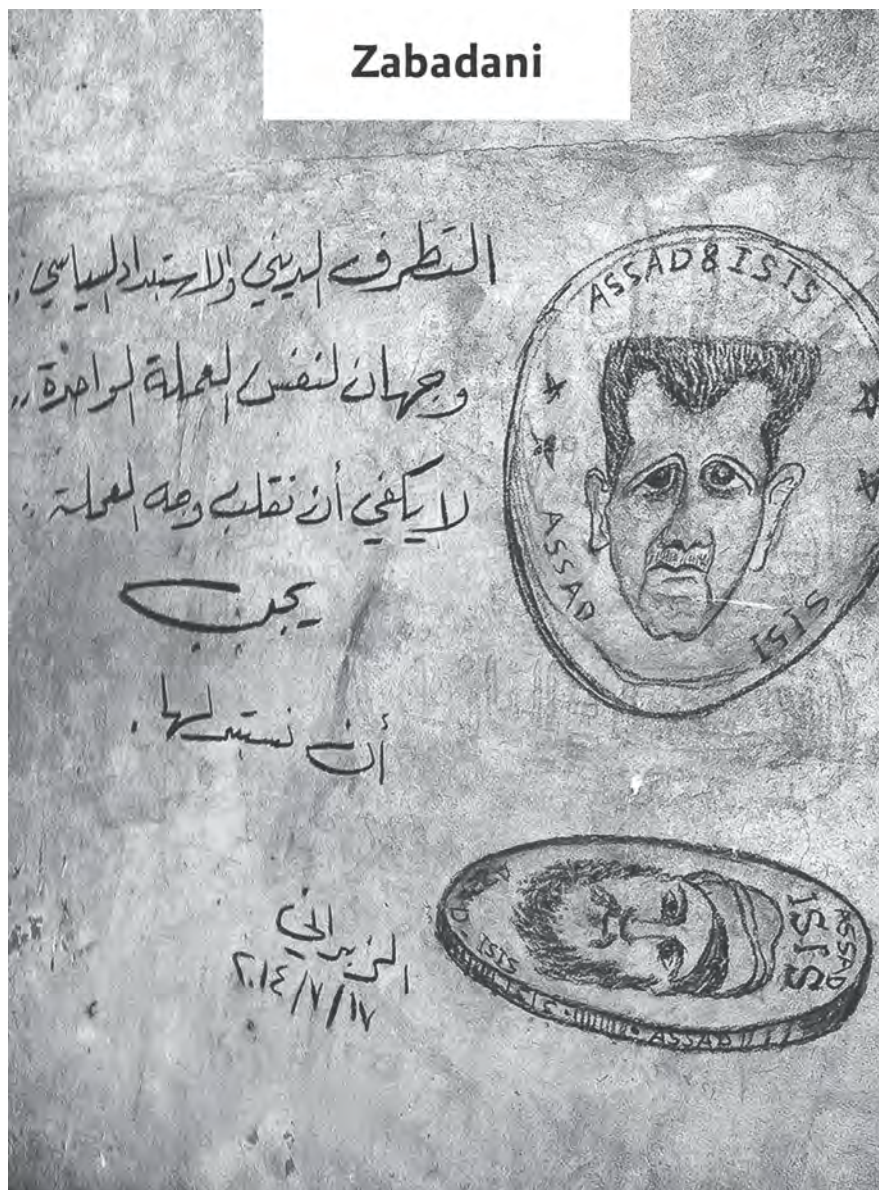 Zabadani
التطرف الديني والاستبداد السياسي..
وجهان لنفس العملة الواحدة..
لا يكفي أن نقلب وجه العملة..
يجب
أن نستبدلها.
الزبداني
٢٠١٤/٧/١٧
ASSAD & ISIS
ASSAD
ISIS
ASSAD
ISIS
ASSAD
ISIS
ISIS
ASSAD